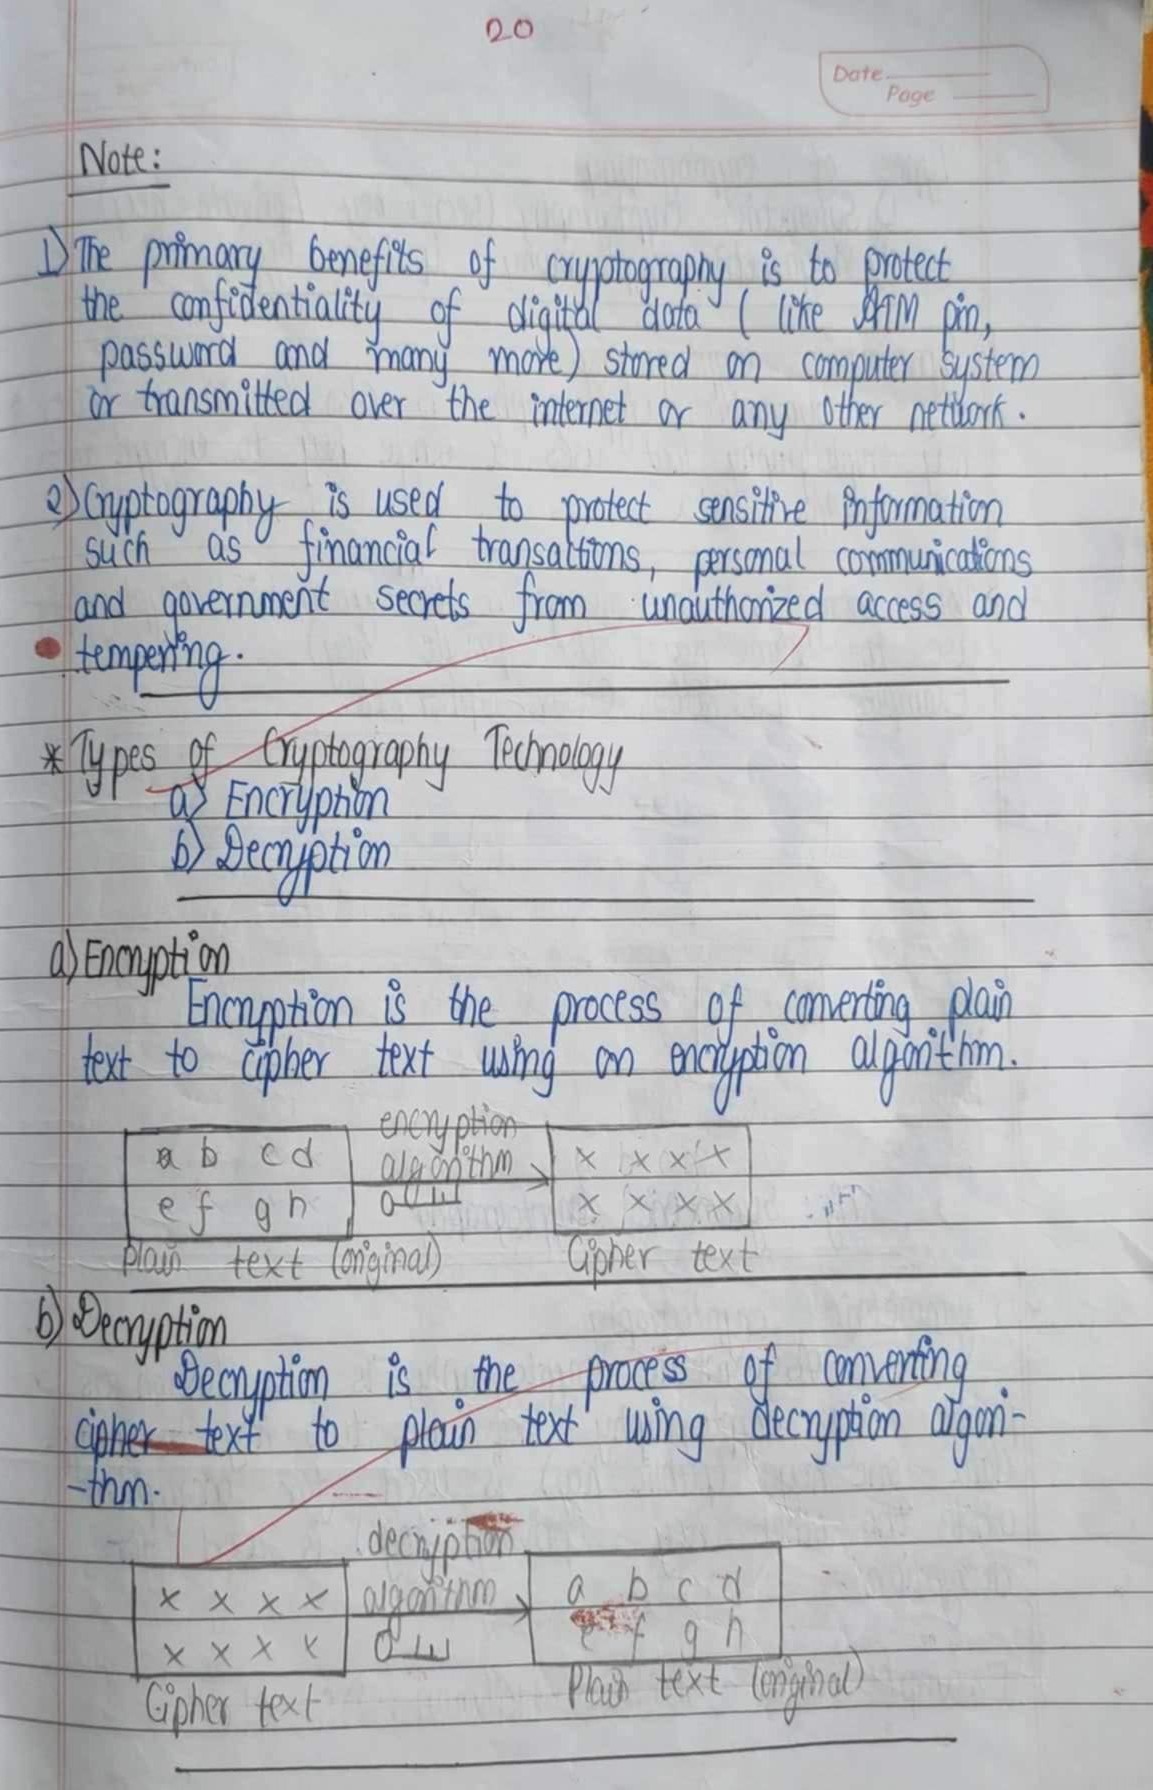 20
Date
Page
Note:
1) The primary benefits of cryptography is to protect
the confidentiality of digital data ( like ATM pin,
password and many more) stored on computer system
or transmitted over the internet or any other network.
2) Cryptography is used to protect sensitive information
such as financial transactions, personal communications
and government secrets from unauthorized access and
tempering.
* Types of Cryptography Technology
a) Encryption
b) Decryption
a) Encryption
Encryption is the process of converting plain
text to cipher text using an encryption algorithm.
encryption
a b c d algorithm x x x x
e f g h x x x x
Plain text (original) Cipher text
b) Decryption
Decryption is the process of converting
cipher text to plain text using decryption algori-
-thm.
decryption
x x x x algorithm a b c d
x x x x e f g h
Cipher text Plain text (original)